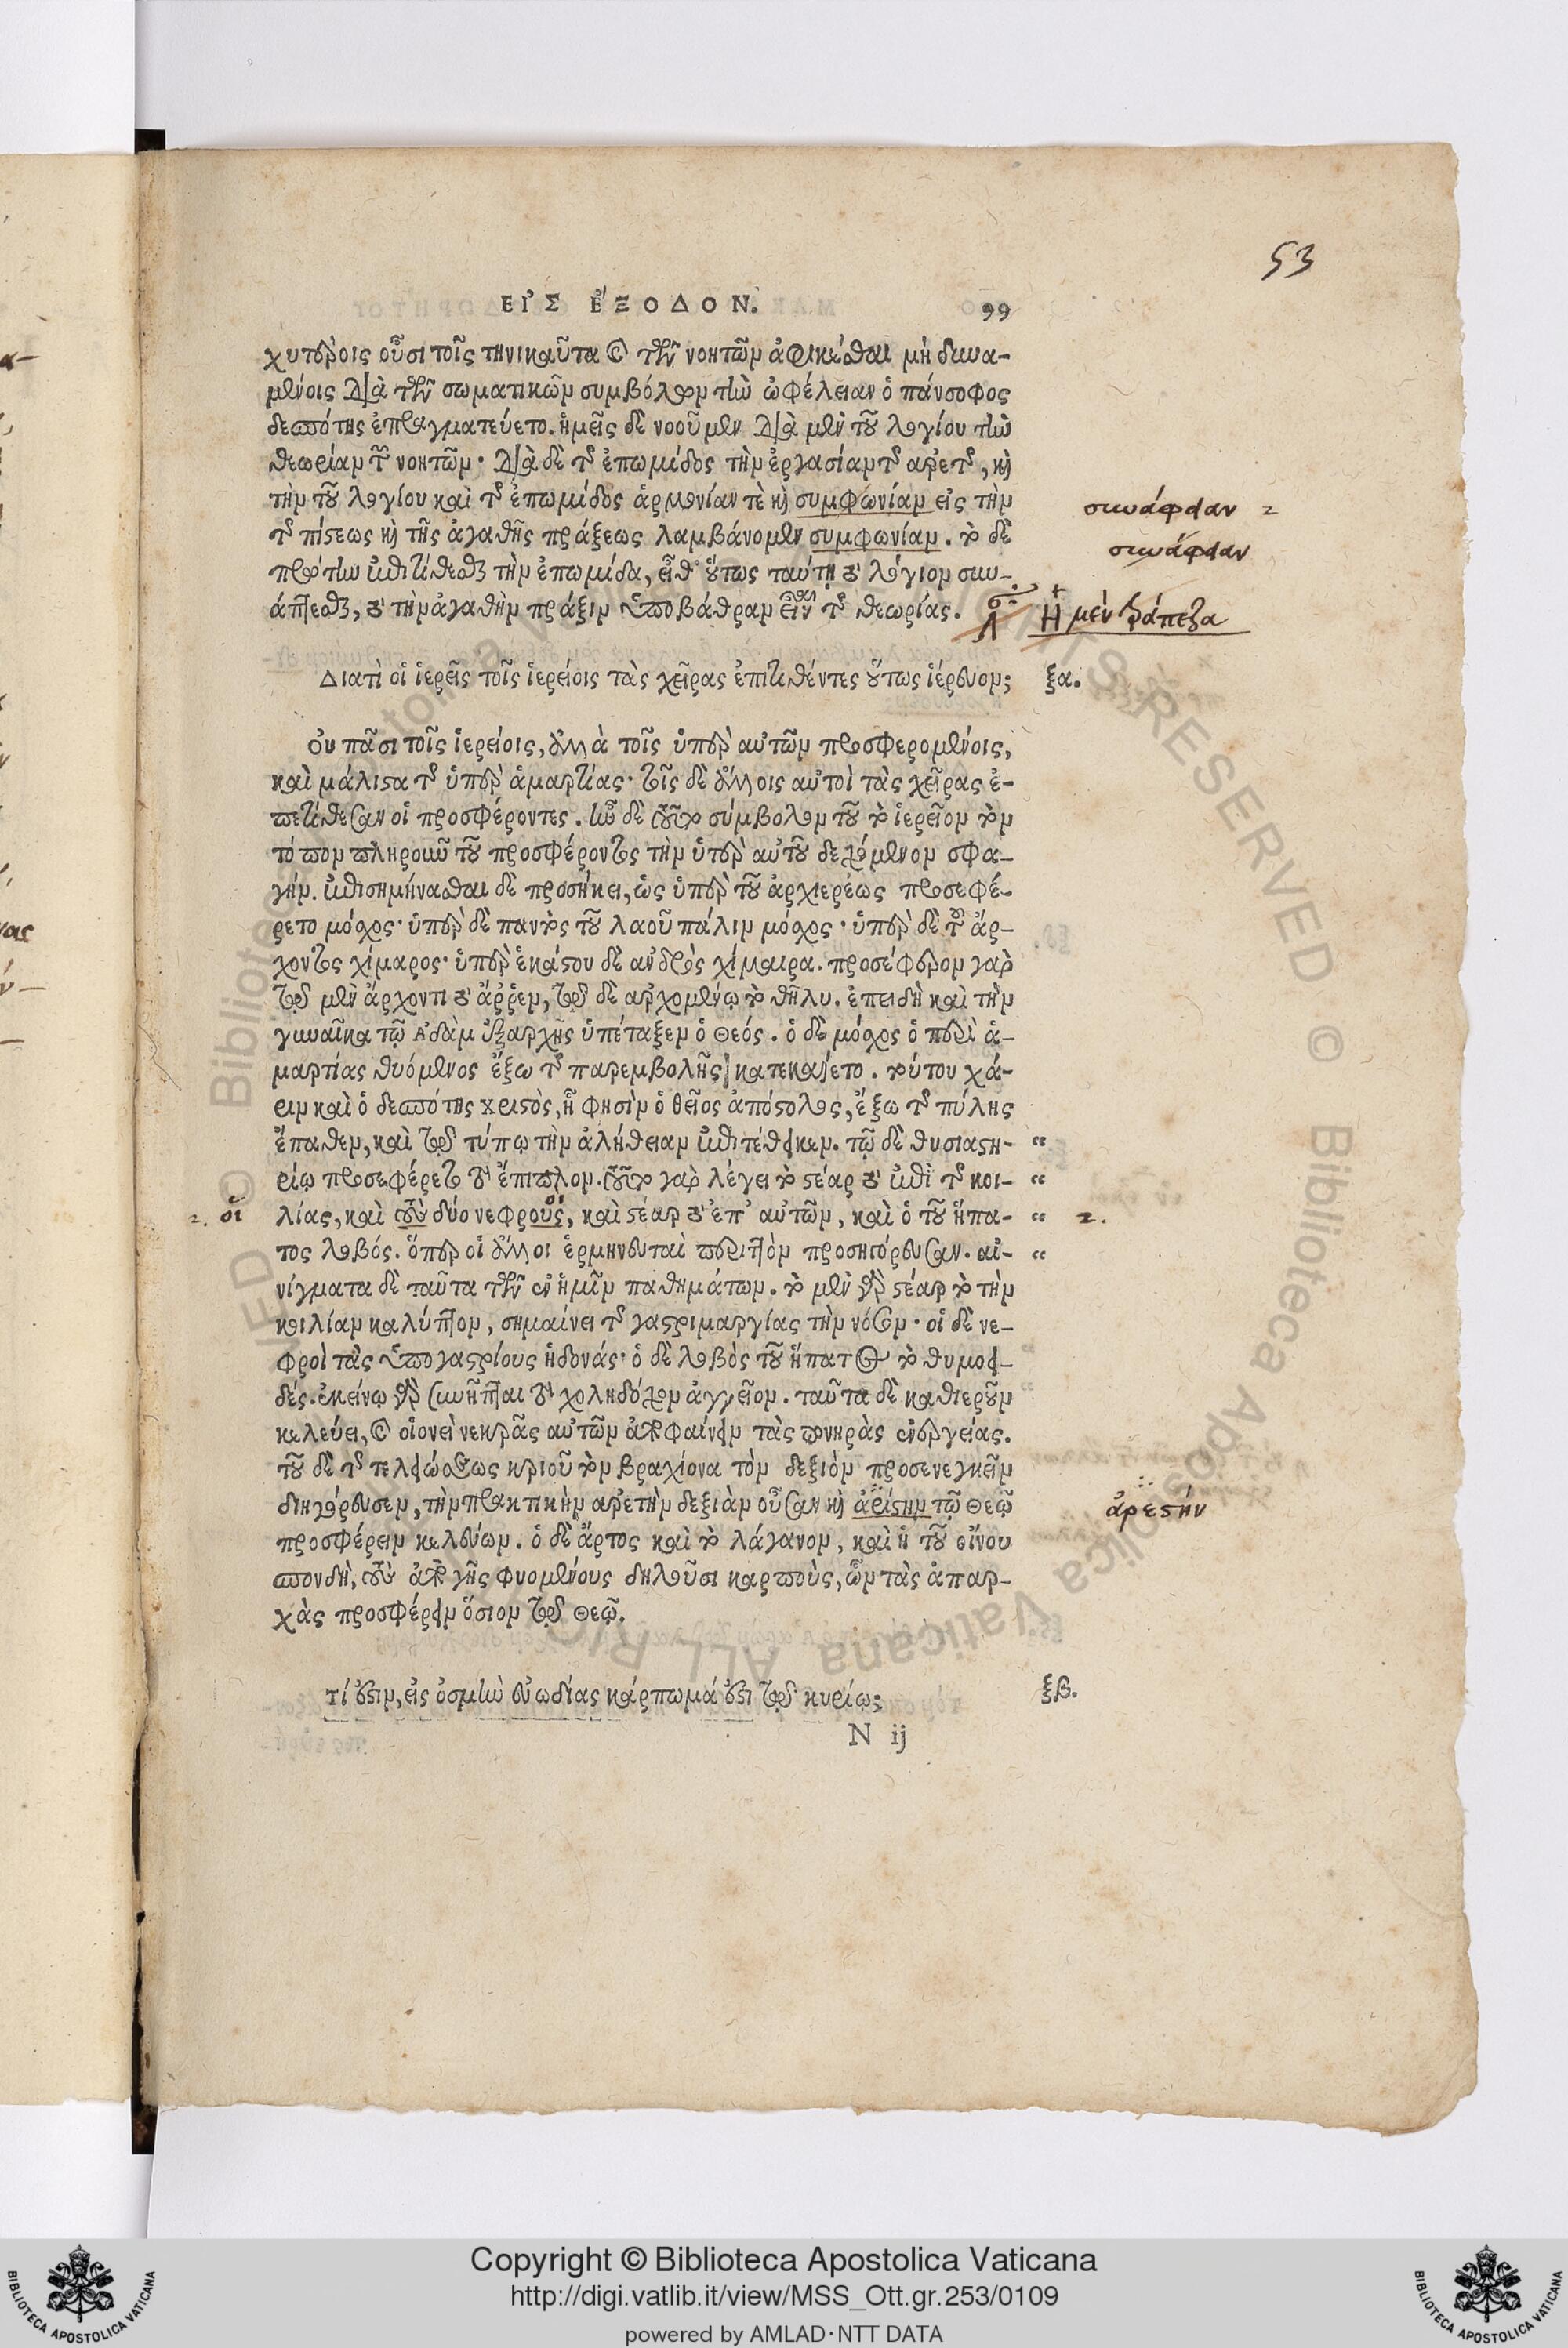 53
ΕΙ᾿Σ Ε᾿ΞΟΔΟΝ. 99
χυτέροις οὖσι τοῖς τηνικαῦτα καὶ τῶν νοητῶν ἀφικέσθαι μὴ δυνα-
μένοις διὰ τῶν σωματικῶν συμβόλων τὴν ὠφέλειαν ὁ πάνσοφος
δεσπότης ἐπραγματεύετο. ἡμεῖς δὲ νοοῦμεν διὰ μὲν τοῦ λογίου τὴν
θεωρίαν τῶν νοητῶν· διὰ δὲ τῆς ἐπωμίδος τὴν ἐργασίαν τῆς ἀρετῆς, καὶ
τὴν τοῦ λογίου καὶ τῆς ἐπωμίδος ἁρμονίαν τὲ καὶ συμφωνίαν εἰς τὴν
τῆς πίστεως καὶ τῆς ἀγαθῆς πράξεως λαμβάνομεν συμφωνίαν. τὸ δὲ
πρότην ἐπιτίθεσθαι τὴν ἐπωμίδα, εἶθ᾽ οὕτως ταύτῃ τὸ λόγιον συν-
άπτεσθαι, τὸ τὴν ἀγαθὴν πρᾶξιν ὑποβάθραν εἶν τῆς θεωρίας.
συνάφειαν 2
συνάφειαν
Ἡ μὲν τράπεζα
Διατὶ οἱ ἱερεῖς τοῖς ἱερείοις τὰς χεῖρας ἐπιτιθέντες οὕτως ἱέρευον; ξα.
Οὐ πᾶσι τοῖς ἱερείοις, ἀλλὰ τοῖς ὑπὲρ αὐτῶν προσφερομένοις,
καὶ μάλιστα τῆς ὑπὲρ ἁμαρτίας· τοῖς δὲ ἄλλοις αὐτοὶ τὰς χεῖρας ἐ-
πετίθεσαν οἱ προσφέροντες. ἦν δὲ τοῦτο σύμβολον τοῦ τὸ ἱερεῖον τὸν
τόπον πληροῦν τοῦ προσφέροντος τὴν ὑπὲρ αὐτοῦ δεχόμενον σφα-
γήν. ἐπισημήνασθαι δὲ προσήκει, ὡς ὑπὲρ τοῦ ἀρχιερέως προσεφέ-
ρετο μόσχος· ὑπὲρ δὲ παντὸς τοῦ λαοῦ πάλιν μόσχος· ὑπὲρ δὲ τοῦ ἄρ-
χοντος χίμαρος· ὑπὲρ ἑκάστου δὲ ἀνδρὸς χίμαιρα. προσέφερον γὰρ
τῷ μὲν ἄρχοντι τὸ ἄῤῥεν, τῷ δὲ ἀρχομένῳ τὸ θῆλυ. ἐπειδὴ καὶ τὴν
γυναῖκα τῷ Ἀδὰμ ἐξαρχῆς ὑπέταξεν ὁ Θεός. ὁ δὲ μόσχος ὁ περὶ ἁ-
μαρτίας θυόμενος ἔξω τῆς παρεμβολῆς κατεκαίετο. τούτου χά-
ριν καὶ ὁ δεσπότης χριστὸς, ᾗ φησὶν ὁ θεῖος ἀπόστολος, ἔξω τῆς πύλης
ἔπαθεν, καὶ τῷ τύπῳ τὴν ἀλήθειαν ἐπιτέθεικεν. τῷ δὲ θυσιαστη- “
ρίῳ προσεφέρετο τὸ ἐπίπλον. τοῦτο γὰρ λέγει τὸ στέαρ τὸ ἐπὶ τῆς κοι- “
2. οἱ λίας, καὶ τοὺς δύο νεφρούς, καὶ στέαρ τὸ ἐπ᾽ αὐτῶν, καὶ ὁ τοῦ ἥπα- “ 2.
οὶ
τος λοβός. ὅπερ οἱ ἄλλοι ἑρμηνευταὶ περιττὸν προσηγόρευσαν. αἰ- “
νίγματα δὲ ταῦτα τῶν ἐν ἡμῖν παθημάτων. τὸ μὲν γὰρ στέαρ τὸ τὴν
κοιλίαν καλύπτον, σημαίνει τῆς γαστριμαργίας τὴν νόσον· οἱ δὲ νε-
φροὶ τὰς ὑπογαστρίους ἡδονάς· ὁ δὲ λοβὸς τοῦ ἥπατος τὸ θυμοει-
δές. ἐκείνῳ γὰρ συνῆπται τὸ χοληδόχον ἀγγεῖον. ταῦτα δὲ καθιεροῦν
κελεύει, καὶ οἱονεὶ νεκρᾶς αὐτῶν ἀποφαίνειν τὰς πονηρὰς ἐνεργείας.
τοῦ δὲ τῆς τελειώσεως κριοῦ τὸν βραχίονα τὸν δεξιὸν προσενεγκεῖν
διηγόρευσεν, τὴν πρακτικὴν ἀρετὴν δεξιὰν οὖσαν καὶ ἀρίστην τῷ Θεῷ
ἀρεστήν
προσφέρειν κελεύων. ὁ δὲ ἄρτος καὶ τὸ λάγανον, καὶ ἡ τοῦ οἴνου
σπονδὴ, τοὺς ἀπὸ γῆς φυομένους δηλοῦσι καρποὺς, ὧν τὰς ἀπαρ-
χὰς προσφέρειν ὅσιον τῷ Θεῷ.
τί ἐστιν, εἰς ὀσμὴν εὐωδίας κάρπωμά ἐστι τῷ κυρίῳ; ξβ.
N ij
© Biblioteca Apostolica Vaticana ALL RIGHTS RESERVED
Copyright © Biblioteca Apostolica Vaticana
http://digi.vatlib.it/view/MSS_Ott.gr.253/0109
powered by AMLAD·NTT DATA
BIBLIOTECA APOSTOLICA VATICANA
BIBLIOTECA APOSTOLICA VATICANA